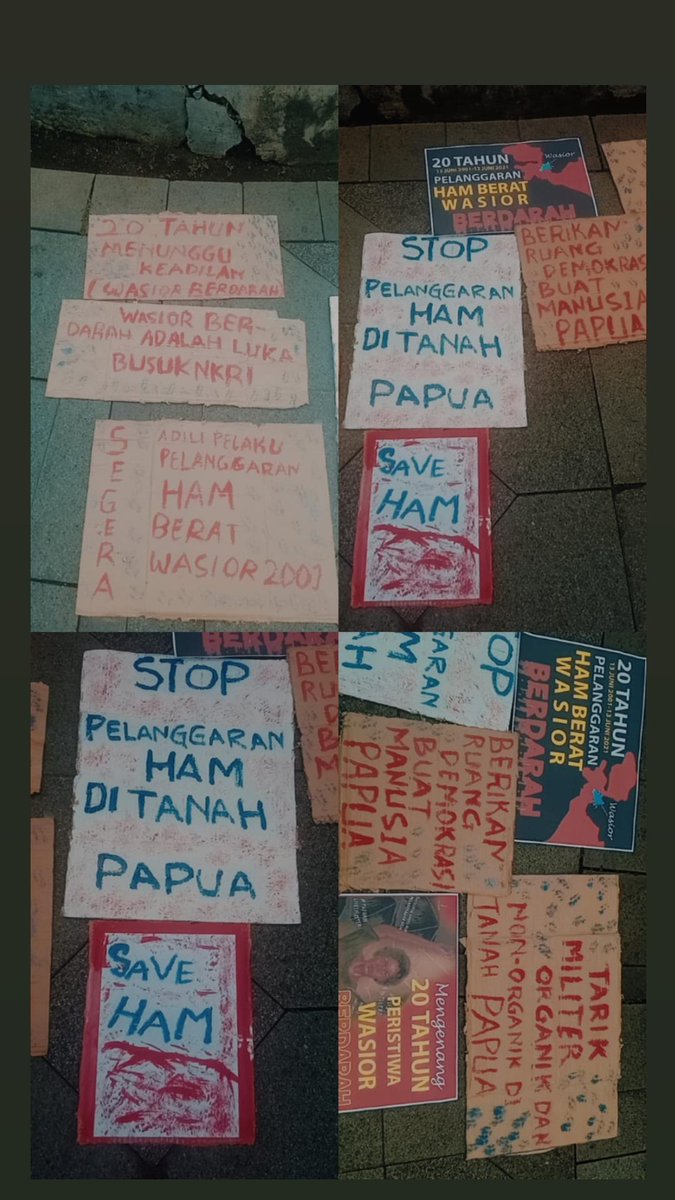 20 TAHUN
MENUNGGU
KEADILAN
(WASIOR BERDARAH
WASIOR BER-
DARAH ADALAH LUKA
BUSUK NKRI
SEGERA
ADILI PELAKU
PELANGGARAN
HAM
BERAT
WASIOR 2001
20 TAHUN
13 JUNI 2001-13 JUNI 2021
PELANGGARAN
HAM BERAT
WASIOR
BERDARAH
Wasior
STOP
PELANGGARAN
HAM
DI TANAH
PAPUA
BERIKAN
RUANG
DEMOKRASI
BUAT
MANUSIA
PAPUA
SAVE
HAM
BERDARAH
STOP
PELANGGARAN
HAM
DI TANAH
PAPUA
BER
RU
D
B
M
SAVE
HAM
OP
GARAN
M
H
20 TAHUN
13 JUNI 2001-13 JUNI 2021
PELANGGARAN
HAM BERAT
WASIOR
BERDARAH
Wasior
BERIKAN
RUANG
DEMOKRASI
BUAT
MANUSIA
PAPUA
Mengenang
20 TAHUN
PERISTIWA
WASIOR
BERDARAH
TARIK
MILITER
ORGANIK DAN
NON-ORGANIK DI
TANAH PAPUA